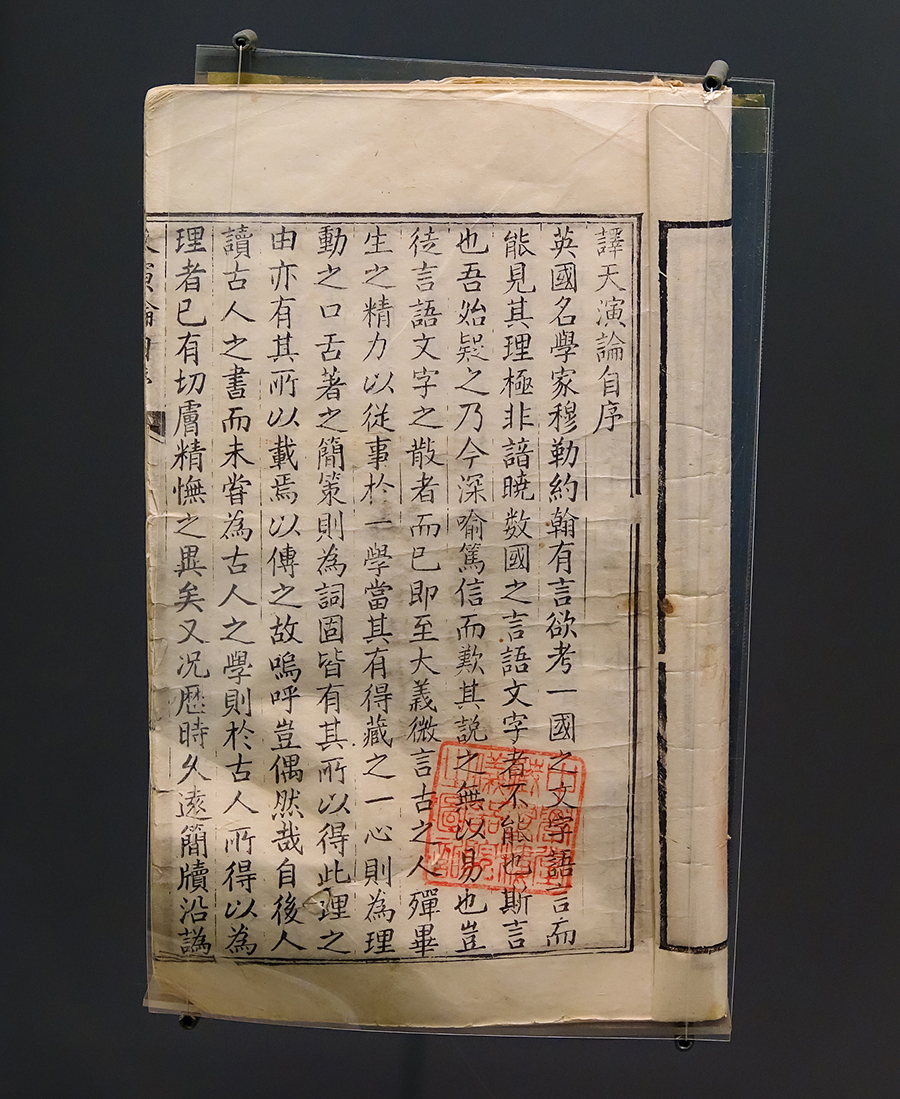 譯天演論自序
英國名學家穆勒約翰有言欲考一國之文字語言而
能見其理極非諳曉数國之言語文字者不能也斯言
也吾始疑之乃今深喻篤信而歎其說之無以易也豈
徒言語文字之散者而已即至大義微言古之人殫畢
生之精力以從事於一學當其有得藏之一心則為理
動之口舌著之簡策則為詞固皆有其所以得此理之
由亦有其所以載焉以傳之故嗚呼豈偶然哉自後人
讀古人之書而未甞為古人之學則於古人所得以為
理者已有切膚精憮之異矣又况歷時久遠簡牘沿譌